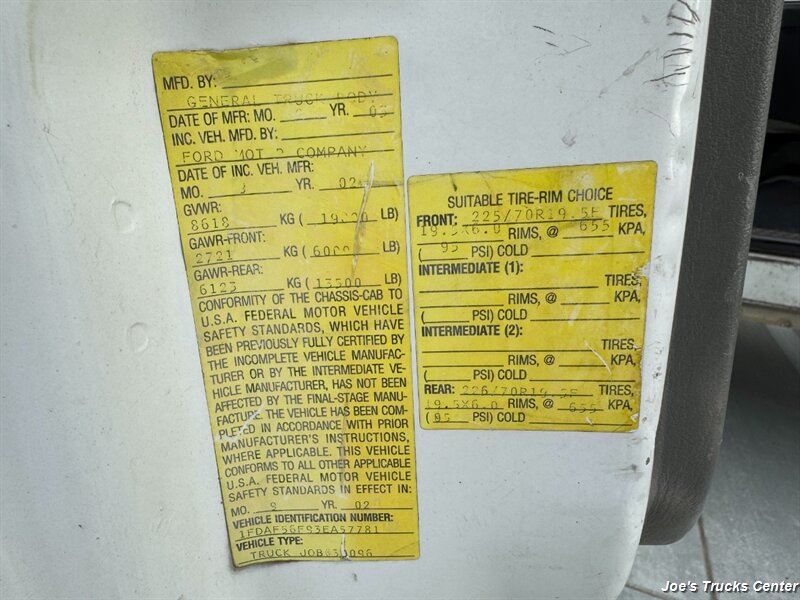 MFD. BY:
GENERAL TRUCK BODY
DATE OF MFR: MO. YR. 03
INC. VEH. MFD. BY:
FORD MOT R COMPANY
DATE OF INC. VEH. MFR:
MO. 9 YR. 02
GVWR:
8618 KG ( 19000 LB)
GAWR-FRONT:
2721 KG ( 6000 LB)
GAWR-REAR:
6123 KG ( 13500 LB)
CONFORMITY OF THE CHASSIS-CAB TO
U.S.A. FEDERAL MOTOR VEHICLE
SAFETY STANDARDS, WHICH HAVE
BEEN PREVIOUSLY FULLY CERTIFIED BY
THE INCOMPLETE VEHICLE MANUFAC-
TURER OR BY THE INTERMEDIATE VE-
HICLE MANUFACTURER, HAS NOT BEEN
AFFECTED BY THE FINAL-STAGE MANU-
FACTURE. THE VEHICLE HAS BEEN COM-
PLETED IN ACCORDANCE WITH PRIOR
MANUFACTURER'S INSTRUCTIONS,
WHERE APPLICABLE. THIS VEHICLE
CONFORMS TO ALL OTHER APPLICABLE
U.S.A. FEDERAL MOTOR VEHICLE
SAFETY STANDARDS IN EFFECT IN:
MO. 9 YR. 02
VEHICLE IDENTIFICATION NUMBER:
1FDAF56F93EA57781
VEHICLE TYPE:
TRUCK JOB#30096
SUITABLE TIRE-RIM CHOICE
FRONT: 225/70R19.5F TIRES,
19.5X6.0 RIMS, @ 655 KPA,
( 95 PSI) COLD
INTERMEDIATE (1):
TIRES,
RIMS, @ KPA,
( PSI) COLD
INTERMEDIATE (2):
TIRES,
RIMS, @ KPA,
( PSI) COLD
REAR: 226/70R19.5F TIRES,
19.5X6.0 RIMS, @ 655 KPA,
( 95 PSI) COLD
Joe's Trucks Center